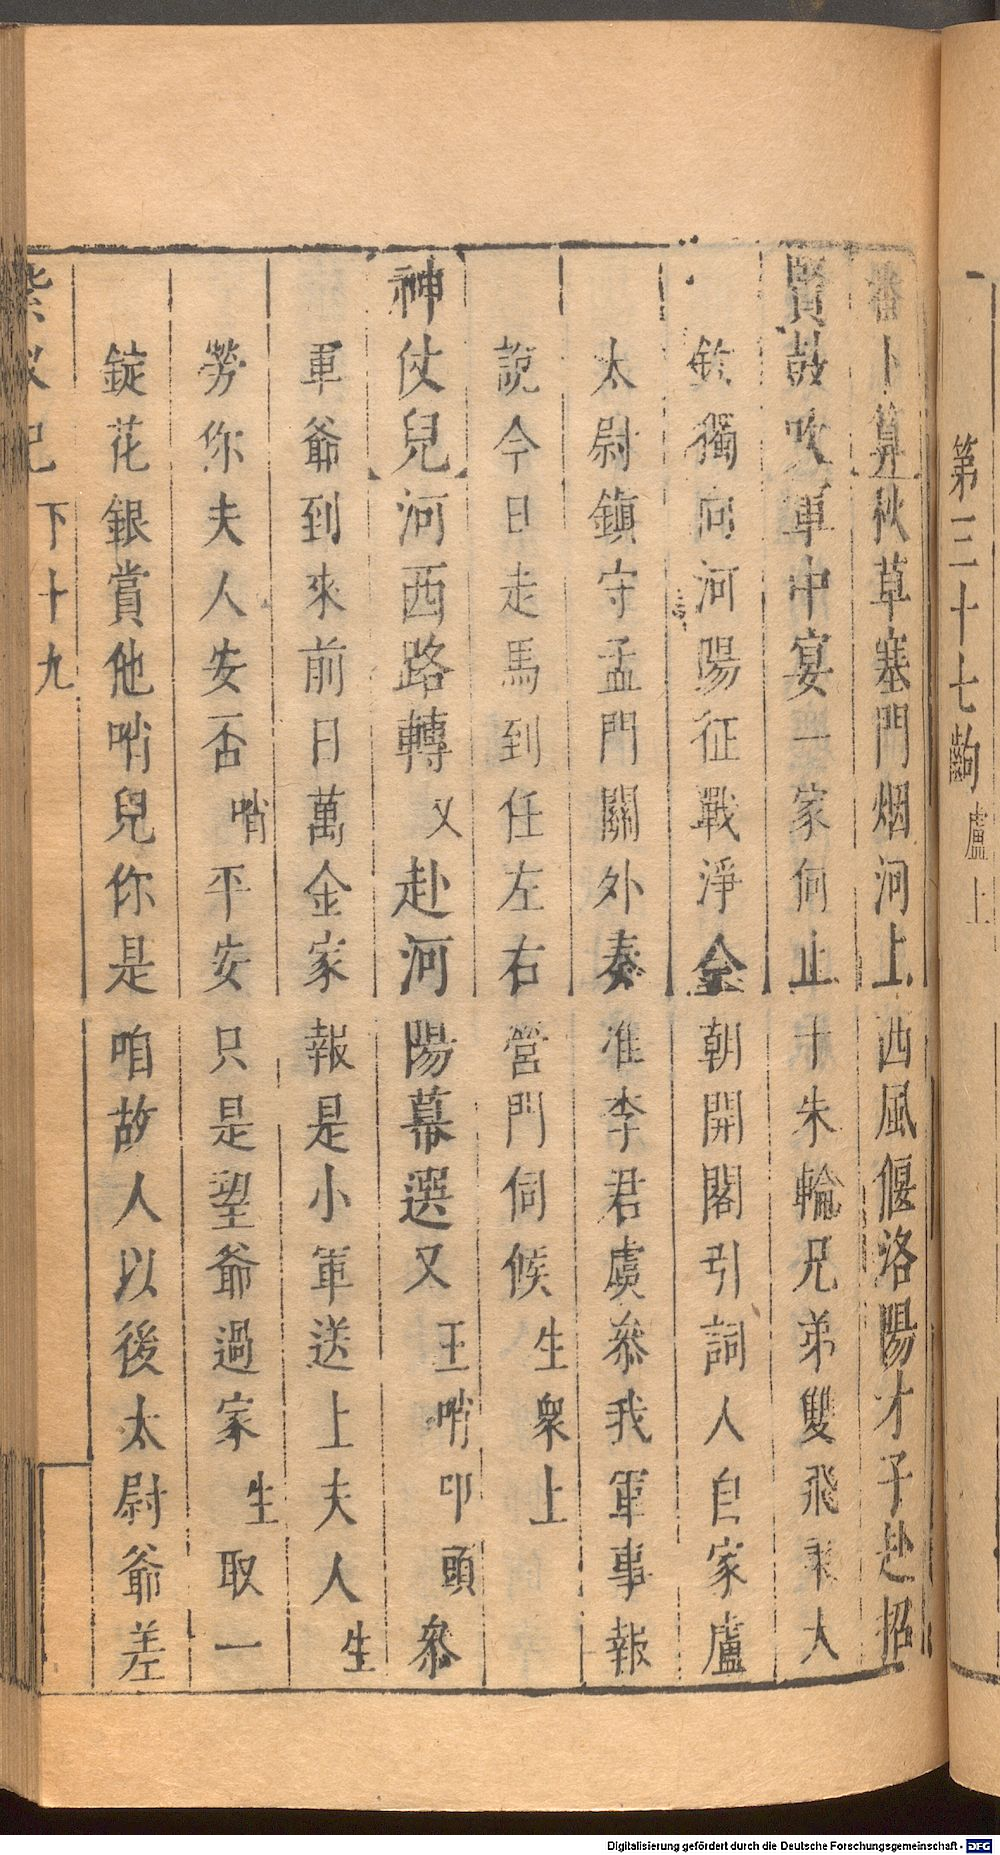 第三十七齣 盧上
番卜算秋草塞門烟河上西風偃洛陽才子赴招
賢鼓吹軍中宴一家何止十朱輪兄弟雙飛秉大
鉞獨向河陽征戰淨金朝開閣引詞人自家盧
太尉鎮守孟門關外奏准李君虞叅我軍事報
說今日走馬到任左右營門伺候 生衆上
神仗兒河西路轉 又 赴河陽幕選又 王哨叩頭叅
軍爺到來前日萬金家報是小軍送上夫人 生
勞你夫人安否 哨 平安只是望爺過家 生 取一
錠花銀賞他哨兒你是咱故人以後太尉爺差
紫釵記 下 十九
Digitalisierung gefördert durch die Deutsche Forschungsgemeinschaft - DFG